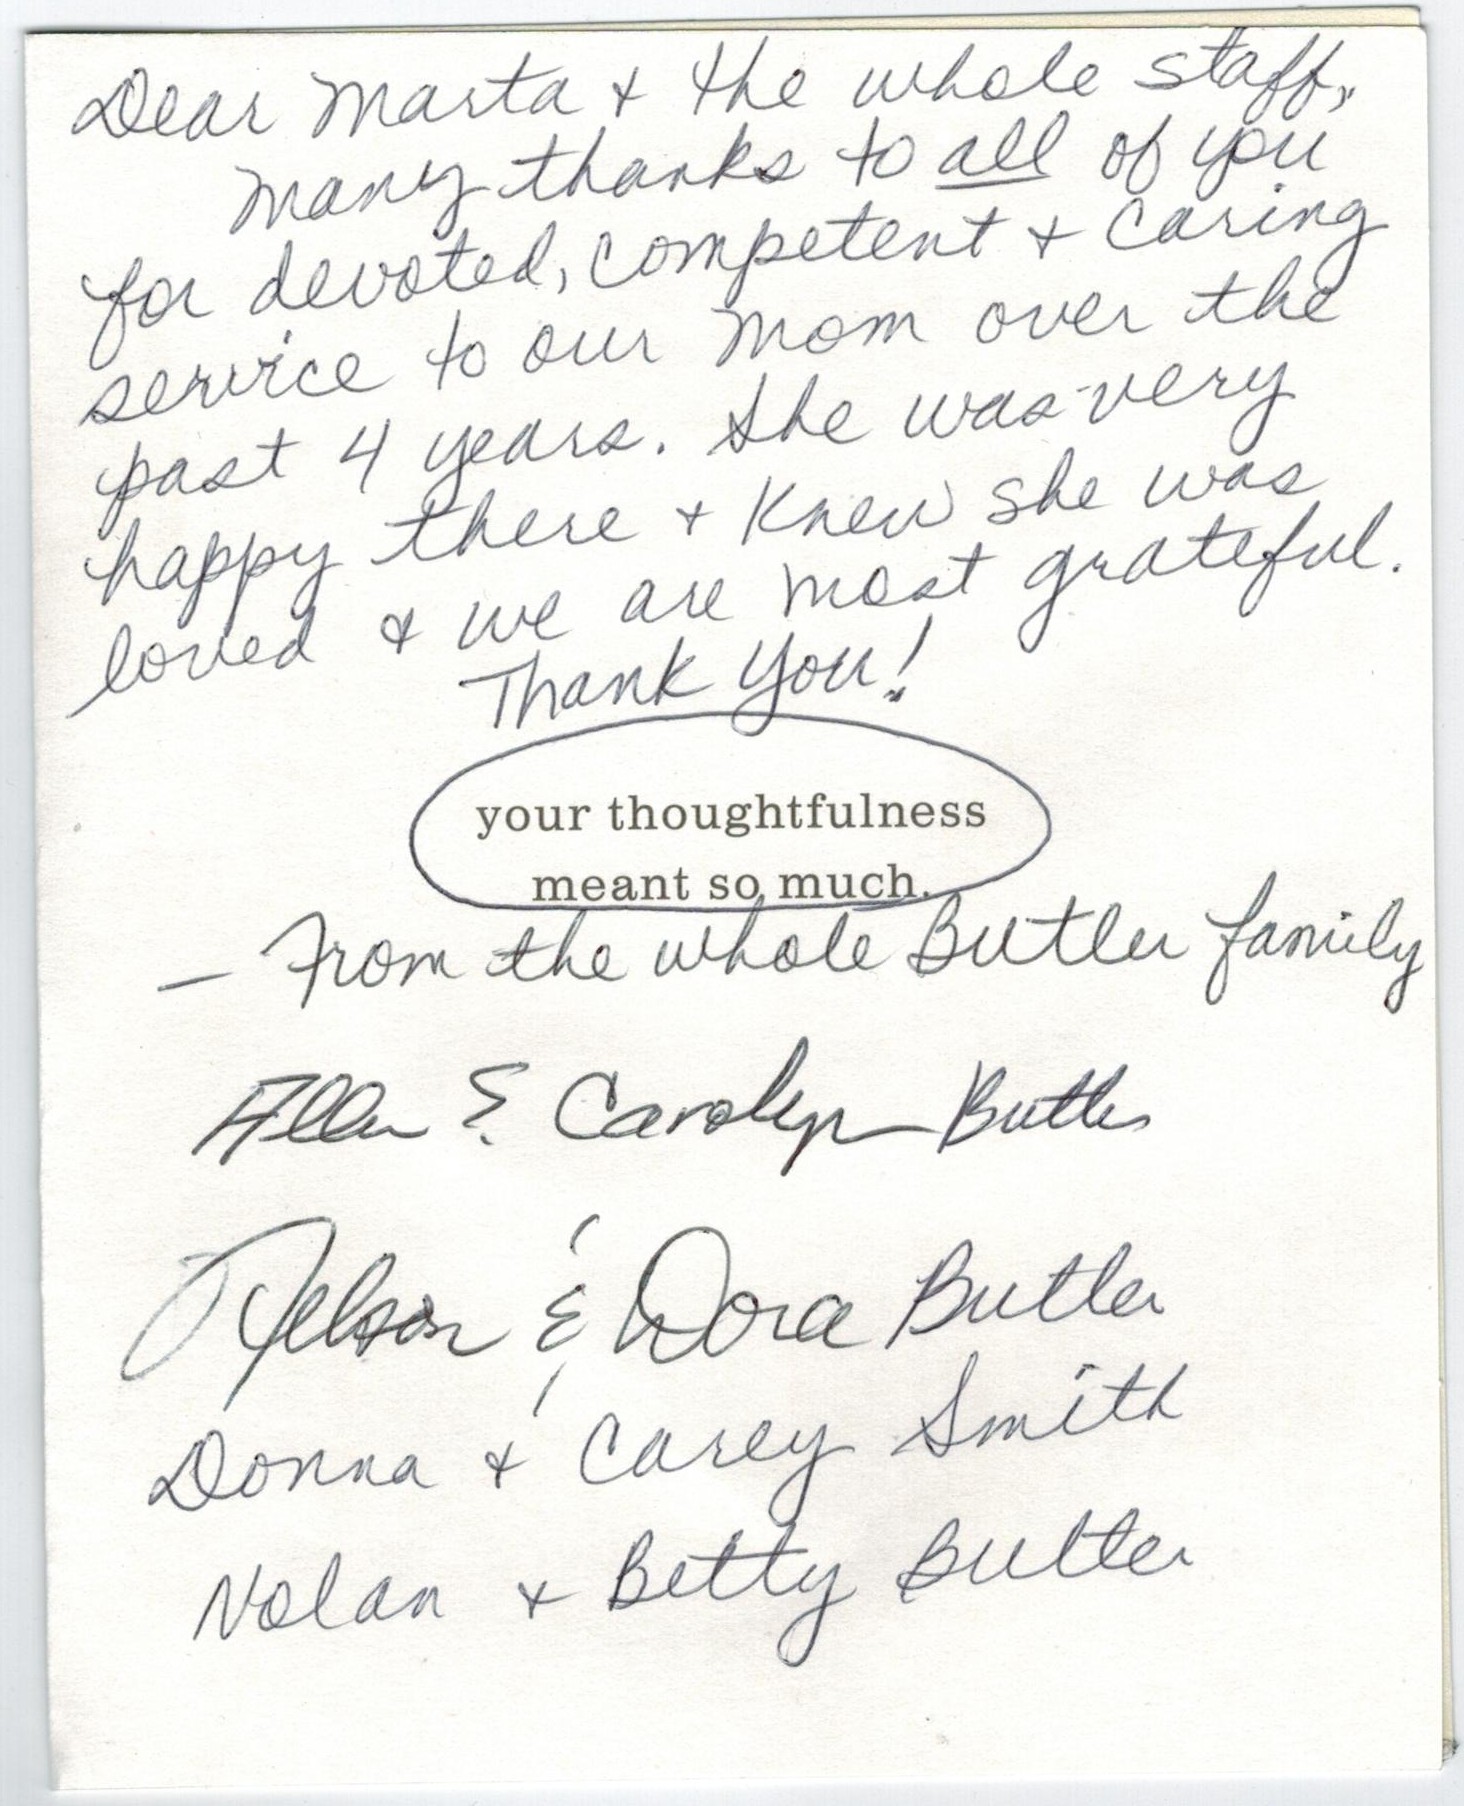 Dear Marta + the whole staff,
Many thanks to all of you
for devoted, competent + caring
service to our Mom over the
past 4 years. She was very
happy there + knew she was
loved & we are most grateful.
Thank You!
your thoughtfulness
meant so much.
— From the whole Butler family
Allen & Carolyn Butler
Nelson & Dora Butler
Donna & Carey Smith
Nolan + Betty Butler